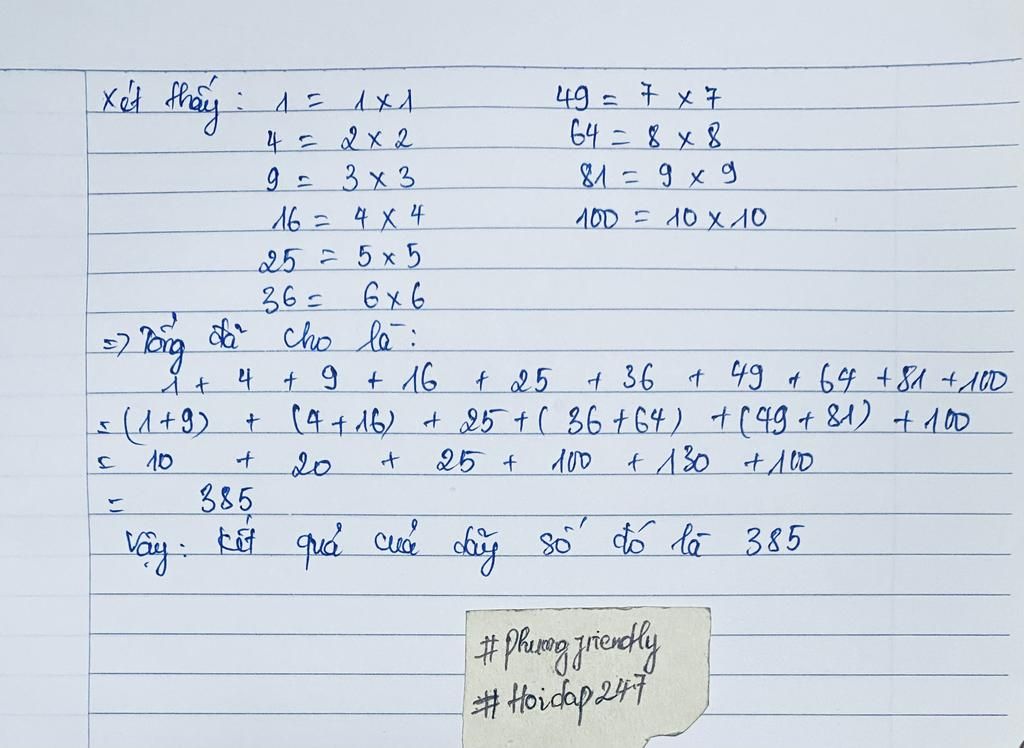 Xét thấy: 1 = 1 x 1
4 = 2 x 2
9 = 3 x 3
16 = 4 x 4
25 = 5 x 5
36 = 6 x 6
49 = 7 x 7
64 = 8 x 8
81 = 9 x 9
100 = 10 x 10
=> Tổng đã cho là:
1 + 4 + 9 + 16 + 25 + 36 + 49 + 64 + 81 + 100
= (1+9) + (4+16) + 25 + (36+64) + (49+81) + 100
= 10 + 20 + 25 + 100 + 130 + 100
= 385
Vậy: Kết quả cuả dãy số đó là 385
#Phuongfriendly
#Hoidap247